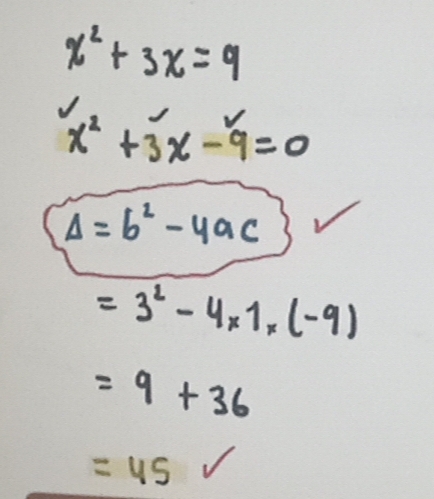 x² + 3x = 9
x² + 3x - 9 = 0
Δ = b² - 4ac
= 3² - 4 × 1 × (-9)
= 9 + 36
= 45